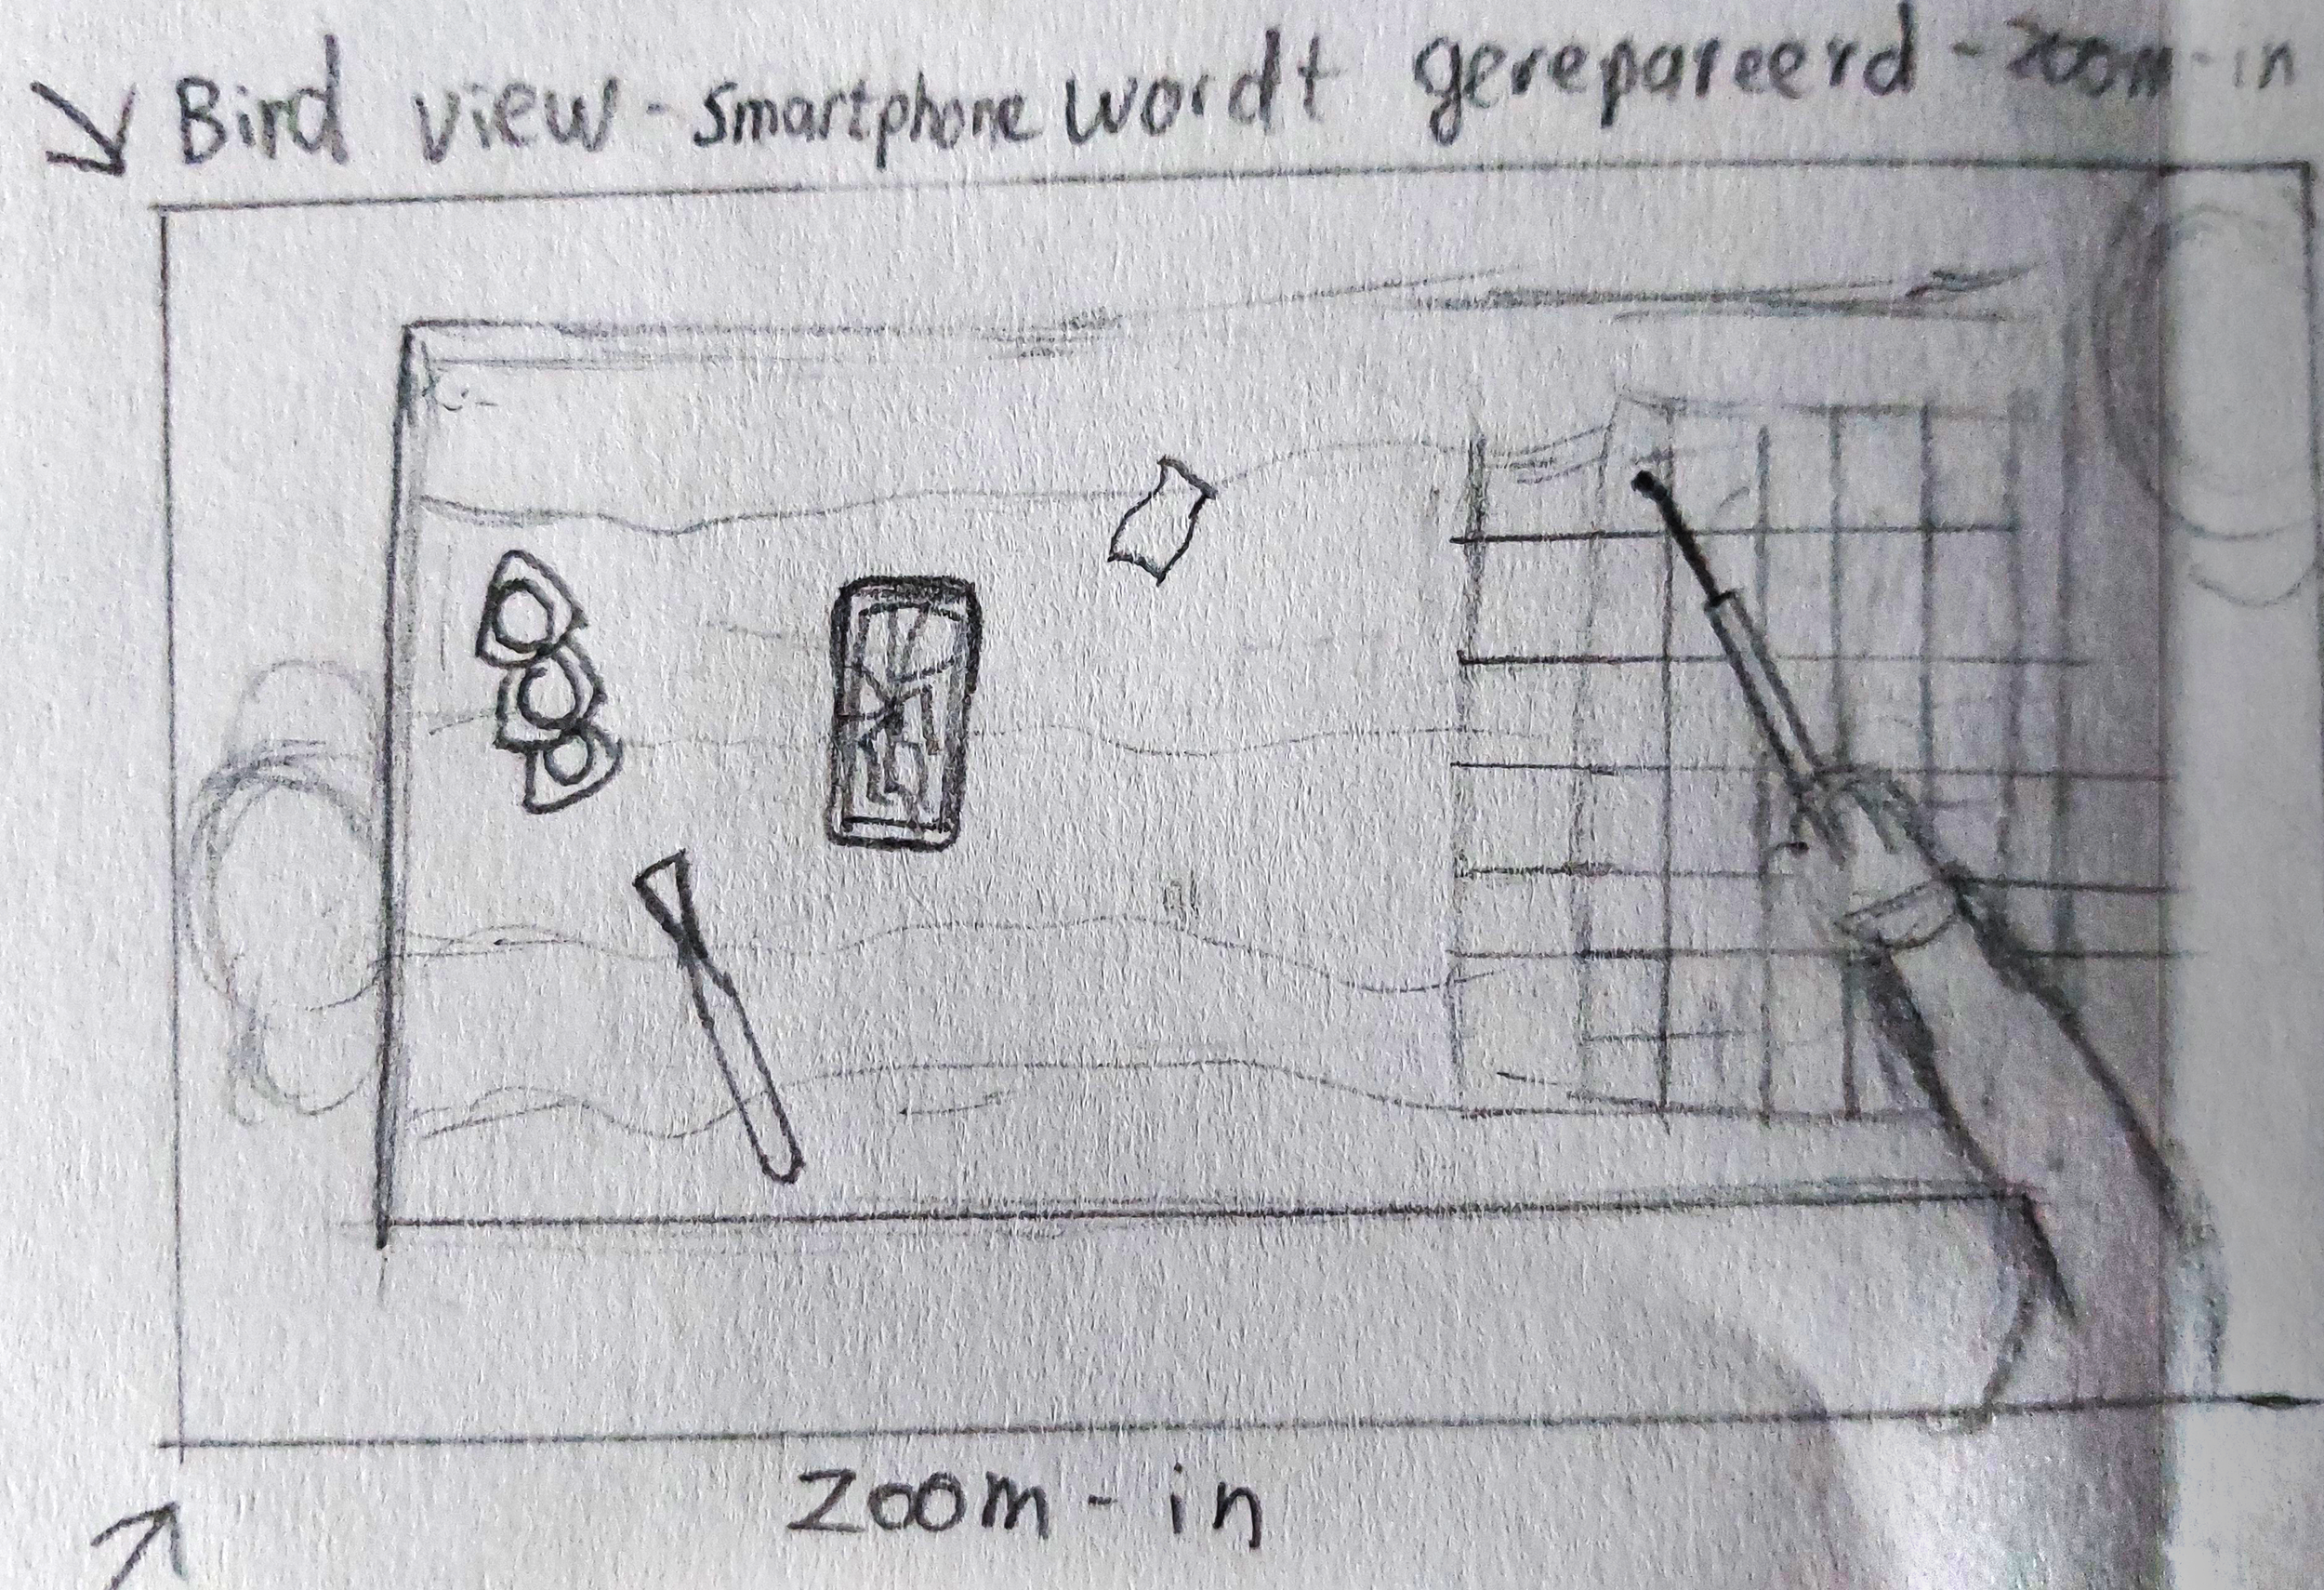 Bird view - Smartphone wordt gerepareerd - zoom-in
zoom-in